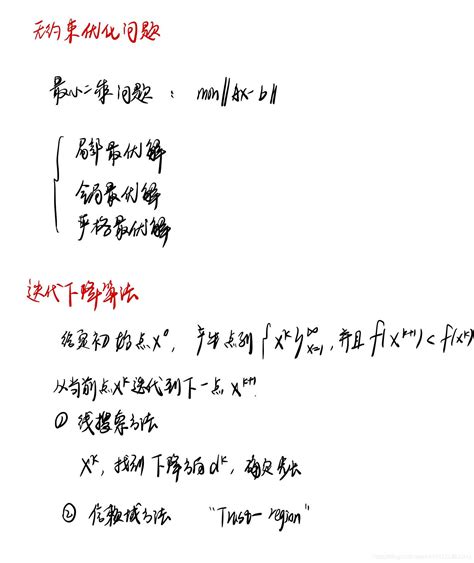 无约束优化问题
最小二乘问题： min||Ax-b||
局部最优解
全局最优解
严格最优解
迭代下降算法
给定初始点x⁰， 产生点列{x^k}_{x=1}^∞，并且 f(x^{k+1})<f(x^k)
从当前点x^k迭代到下一点x^{k+1}.
① 线搜索方法
x^k，找到下降方向d^k，确定步法
② 信赖域方法 "Trust-region"